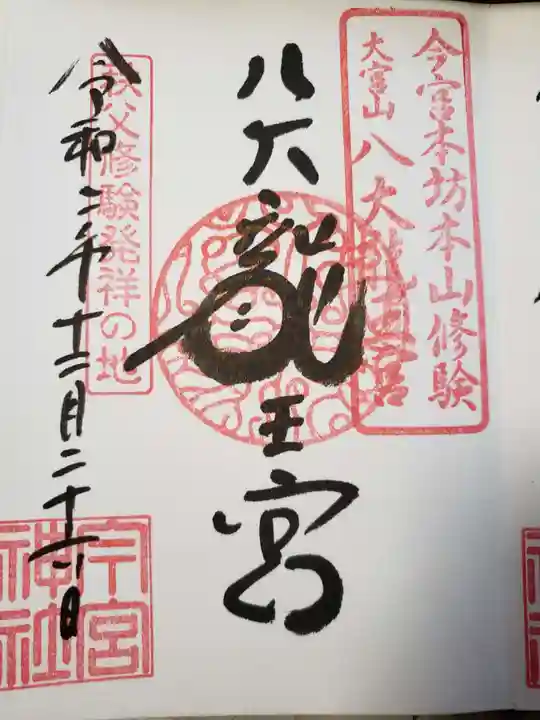 今宮本坊本山修験
大宮山八大龍王宮
八大龍王宮
秩父修験発祥の地
令和二年十二月二十六日
今宮
神社